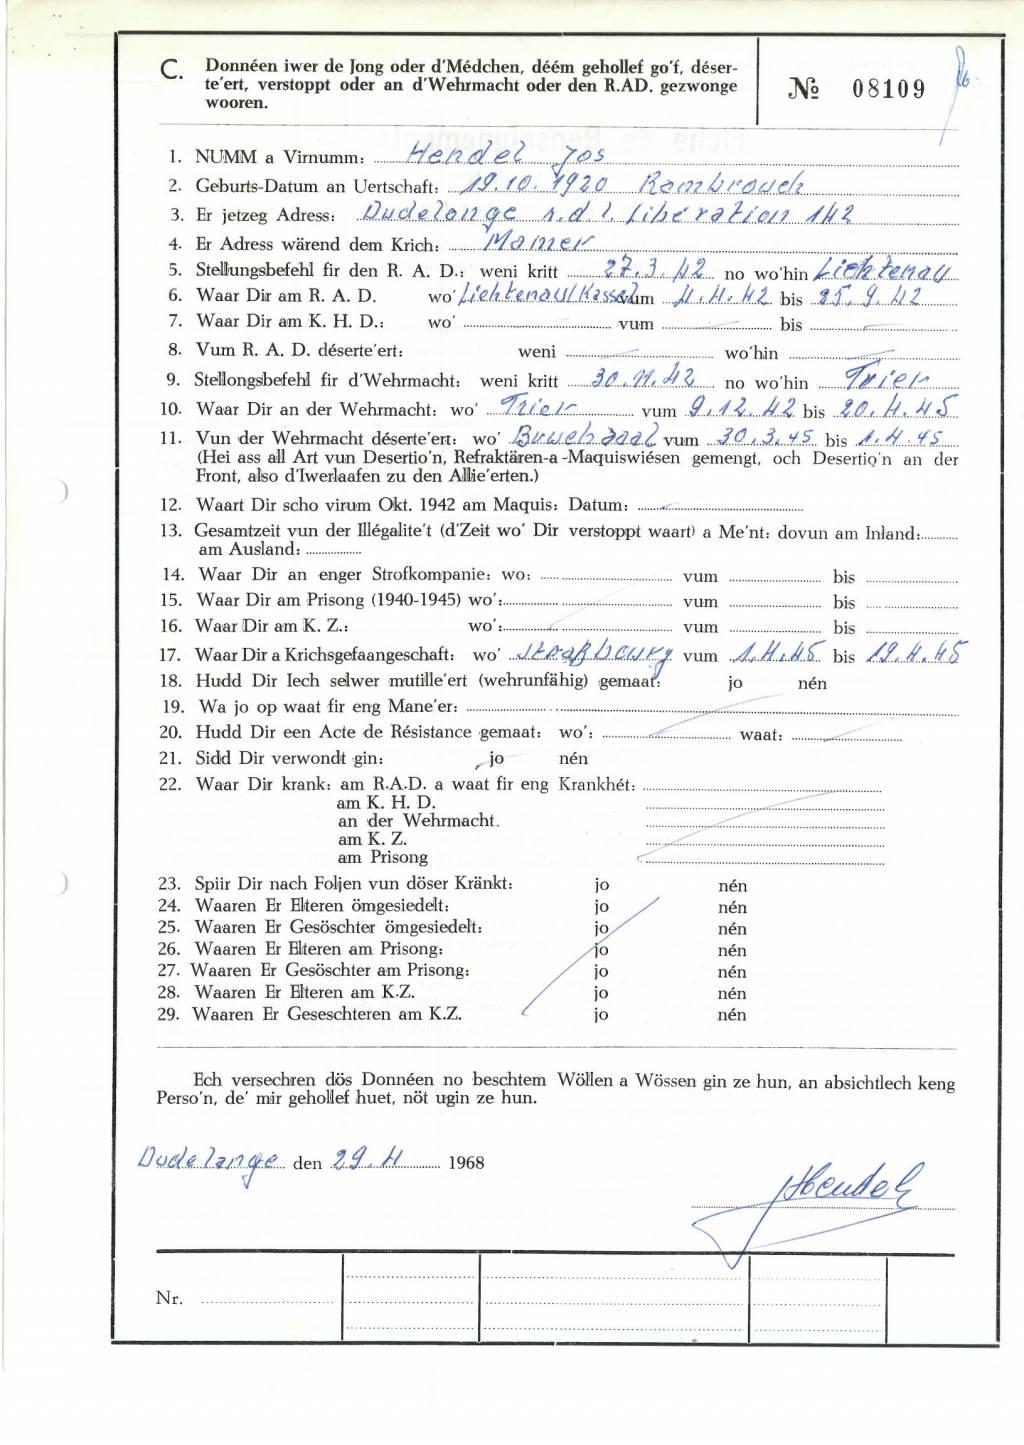 C. Donnéen iwer de Jong oder d'Médchen, déém gehollef go'f, déser-
te'ert, verstoppt oder an d'Wehrmacht oder den R.AD. gezwonge
wooren.
№ 08109
1. NUMM a Virnumm: Hendel Jos
2. Geburts-Datum an Uertschaft: 19.10.1920 Rambrouch
3. Er jetzeg Adress: Dudelange r.d.l. Libération 142
4. Er Adress wärend dem Krich: Mamer
5. Stellungsbefehl fir den R. A. D.: weni kritt 27.3.42 no wo'hin Lichtenau
6. Waar Dir am R. A. D. wo' Lichtenau/Kassel vum 4.4.42 bis 25.9.42
7. Waar Dir am K. H. D.: wo' vum bis
8. Vum R. A. D. déserte'ert: weni wo'hin
9. Stellongsbefehl fir d'Wehrmacht: weni kritt 30.11.42 no wo'hin Trier
10. Waar Dir an der Wehrmacht: wo' Trier vum 9.12.42 bis 20.4.45
11. Vun der Wehrmacht déserte'ert: wo' Bruchsaal vum 30.3.45 bis 1.4.45
(Hei ass all Art vun Desertio'n, Refraktären-a-Maquiswiésen gemengt, och Desertio'n an der
Front, also d'Iwerlaafen zu den Allie'erten.)
12. Waart Dir scho virum Okt. 1942 am Maquis: Datum:
13. Gesamtzeit vun der Illégalite't (d'Zeit wo' Dir verstoppt waart) a Me'nt: dovun am Inland:
am Ausland:
14. Waar Dir an enger Strofkompanie: wo: vum bis
15. Waar Dir am Prisong (1940-1945) wo': vum bis
16. Waar Dir am K. Z.: wo': vum bis
17. Waar Dir a Krichsgefaangeschaft: wo' Straßbourg vum 1.4.45 bis 19.4.45
18. Hudd Dir Iech selwer mutille'ert (wehrunfähig) gemaat: jo nén
19. Wa jo op waat fir eng Mane'er:
20. Hudd Dir een Acte de Résistance gemaat: wo': waat:
21. Sidd Dir verwondt gin: jo nén
22. Waar Dir krank: am R.A.D. a waat fir eng Krankhét:
am K. H. D.
an der Wehrmacht.
am K. Z.
am Prisong
23. Spiir Dir nach Foljen vun döser Kränkt: jo nén
24. Waaren Er Elteren ömgesiedelt: jo nén
25. Waaren Er Gesöschter ömgesiedelt: jo nén
26. Waaren Er Elteren am Prisong: jo nén
27. Waaren Er Gesöschter am Prisong: jo nén
28. Waaren Er Elteren am K.Z. jo nén
29. Waaren Er Geseschteren am K.Z. jo nén
Ech versechren dös Donnéen no beschtem Wöllen a Wössen gin ze hun, an absichtlech keng
Perso'n, de' mir gehollef huet, nöt ugin ze hun.
Dudelange den 29.4 1968
JHendel
Nr.